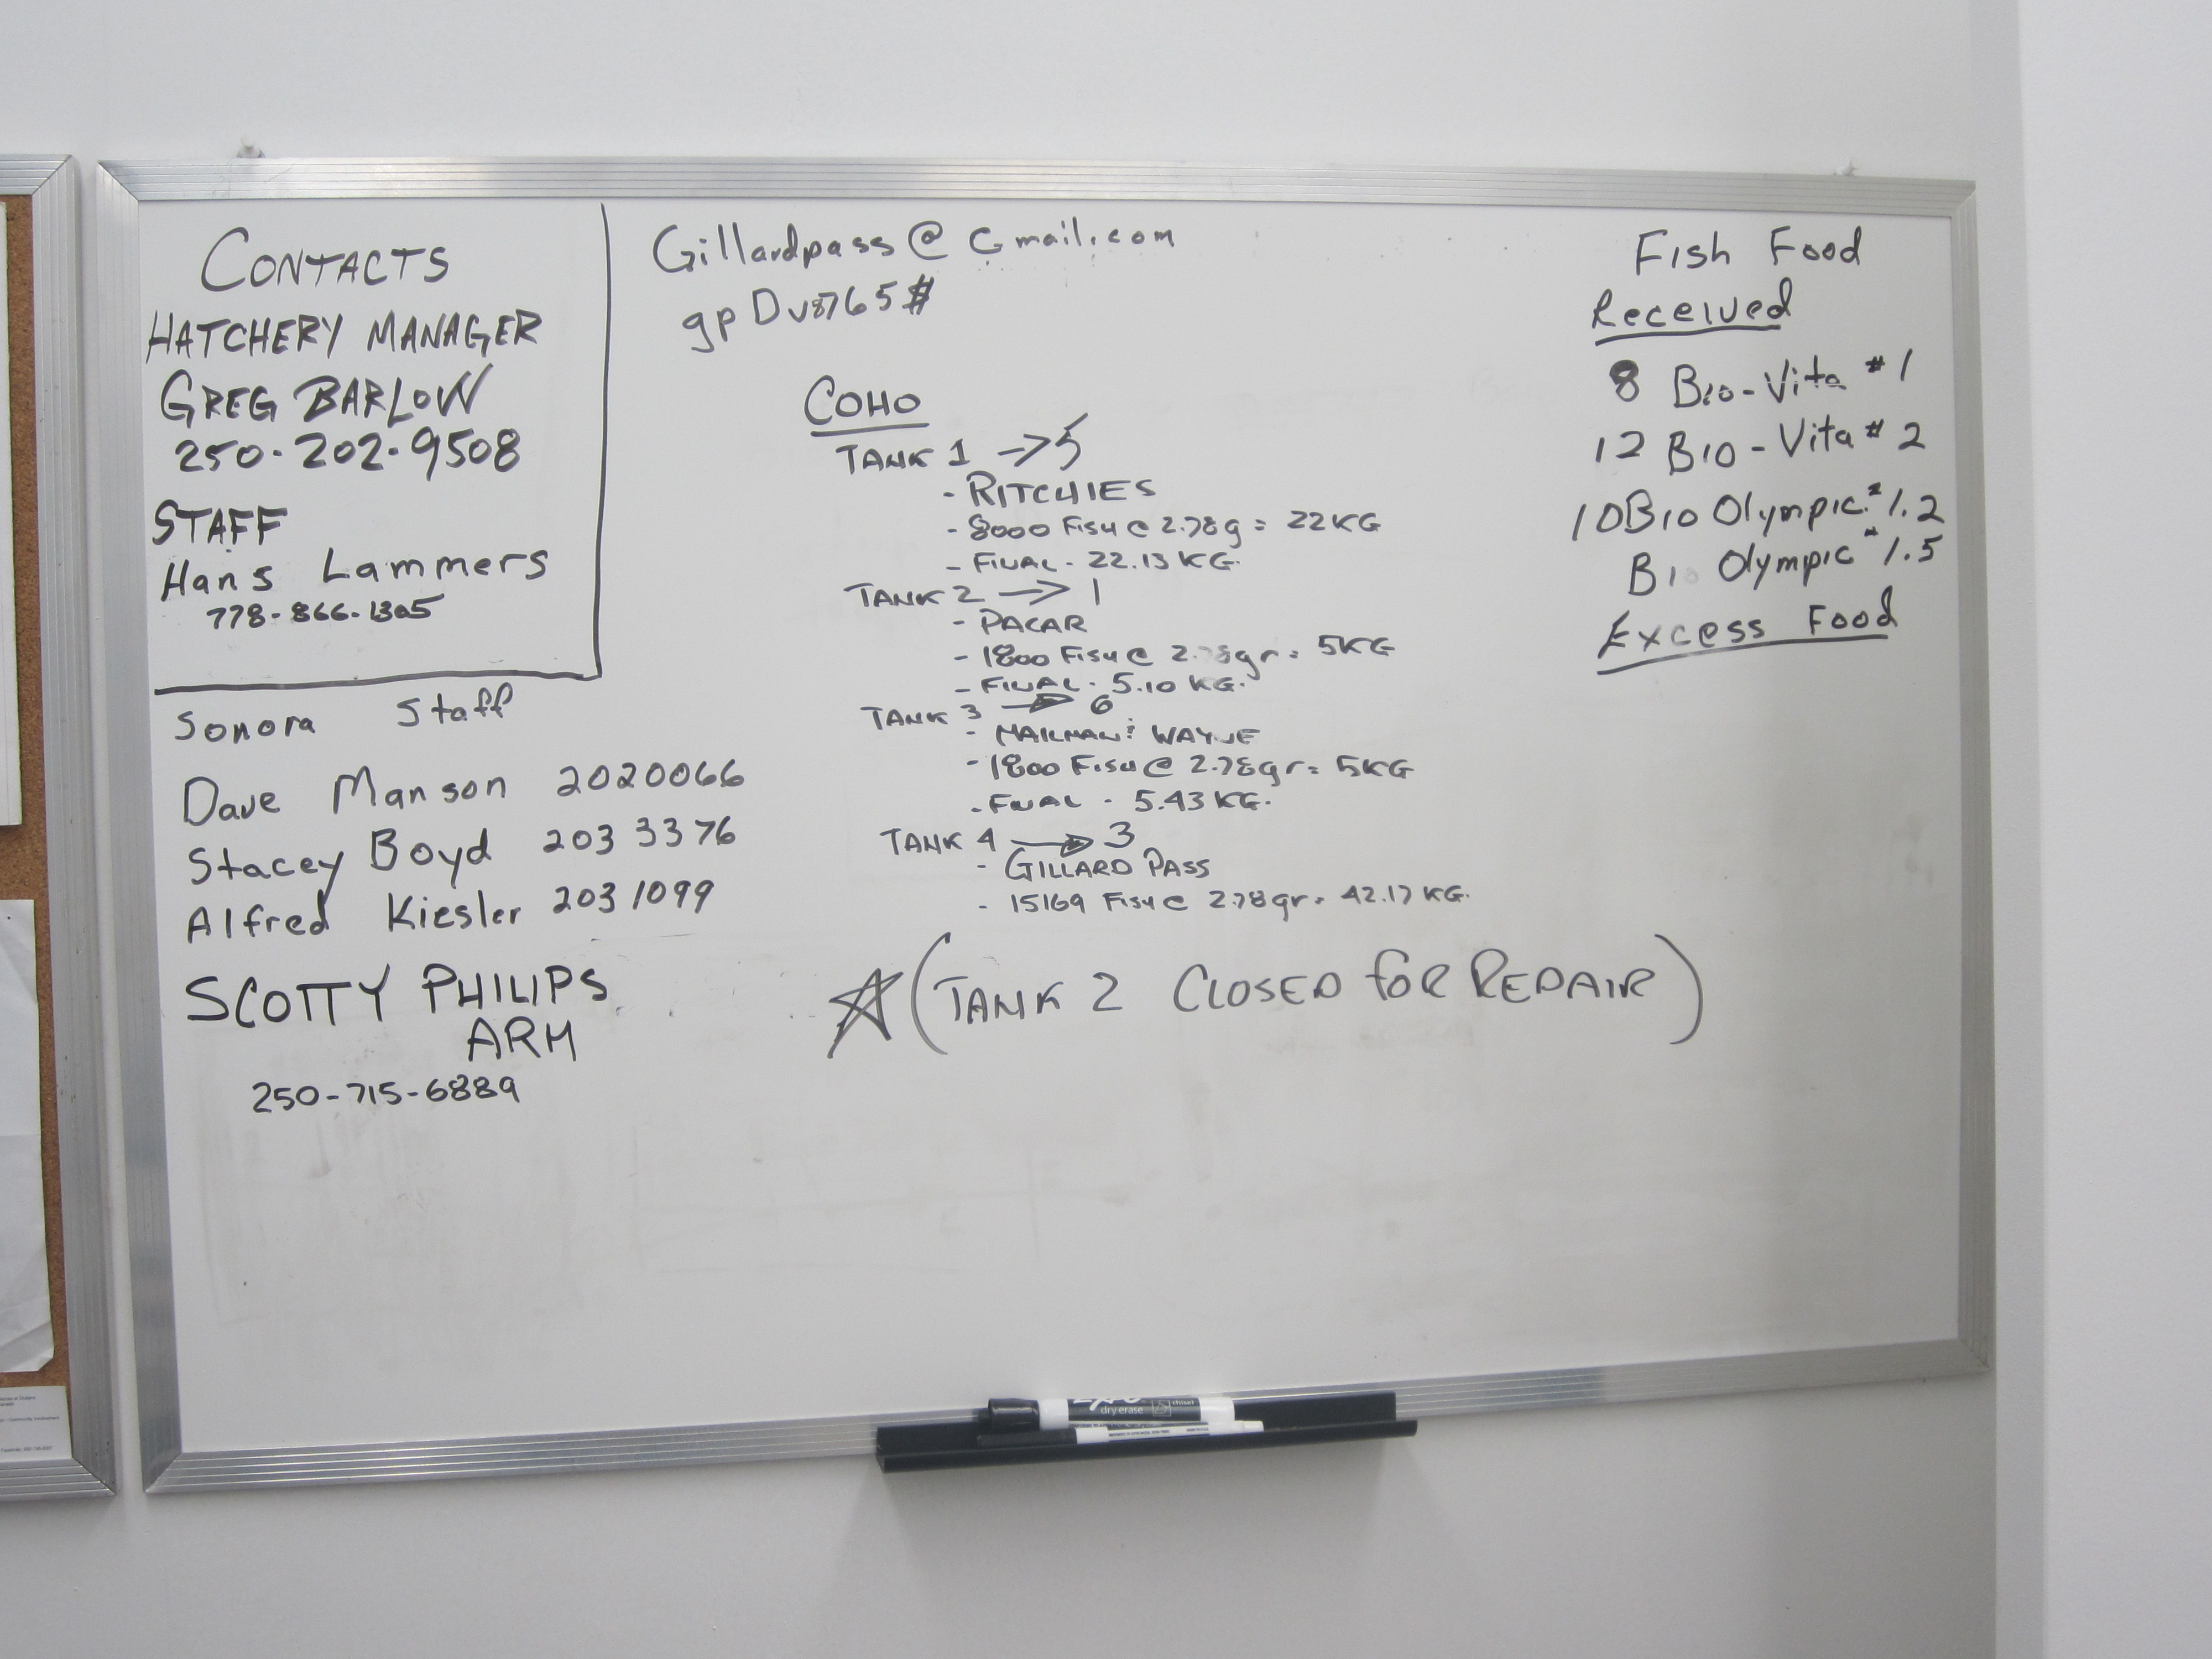 CONTACTS
HATCHERY MANAGER
GREG BARLOW
250-202-9508
STAFF
Hans Lammers
778-866-1305
Sonora Staff
Dave Manson 2020066
Stacey Boyd 203 3376
Alfred Kiesler 203 1099
SCOTTY PHILIPS
ARM
250-715-6889
Gillardpass@Gmail.com
gpDv8765#
COHO
TANK 1 → 5
- RITCHIES
- 8000 FISH @ 2.78g = 22KG
- FINAL - 22.13 KG.
TANK 2 → 1
- PACAR
- 1800 FISH @ 2.78gr = 5KG
- FINAL - 5.10 KG.
TANK 3 → 6
- MAILMAN: WAYNE
- 1800 FISH @ 2.78gr = 5KG
- FINAL - 5.43 KG.
TANK 4 → 3
- GILLARD PASS
- 15169 FISH @ 2.78gr = 42.17 KG.
☆ (TANK 2 CLOSED FOR REPAIR)
Fish Food
Received
8 Bio-Vita #1
12 Bio-Vita #2
10 Bio Olympic #1.2
Bio Olympic #1.5
Excess Food
dry erase
chisel